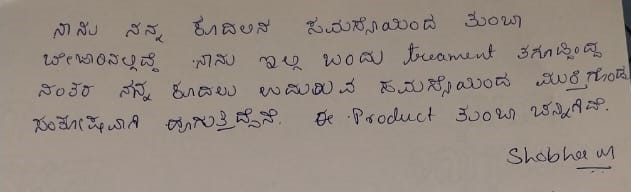 ನಾನು ನನ್ನ ಕೂದಲಿನ ಸಮಸ್ಯೆಯಿಂದ ತುಂಬಾ
ಬೇಜಾರಿನಲ್ಲಿದ್ದೆ ನಾನು ಇಲ್ಲಿ ಬಂದು treament ತಗೊಂಡಿದ್ದ
ನಂತರ ನನ್ನ ಕೂದಲು ಉದುರುವ ಸಮಸ್ಯೆಯಿಂದ ಮುಕ್ತಿಗೊಂಡು
ಸಂತೋಷವಾಗಿ ಹೋಗುತ್ತಿದ್ದೇನೆ. ಈ Product ತುಂಬಾ ಚೆನ್ನಾಗಿದೆ.
Shobha M